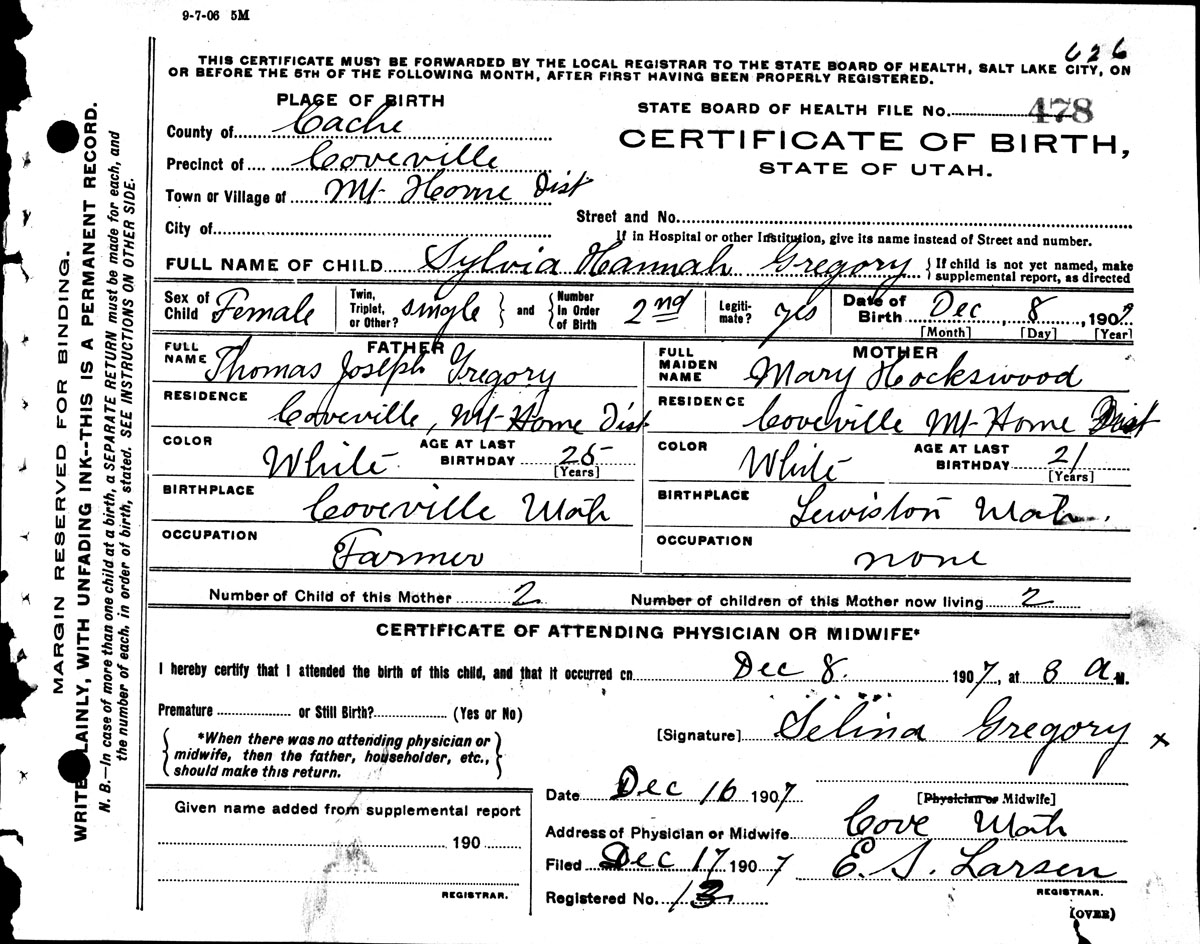 9-7-06 5M
626
THIS CERTIFICATE MUST BE FORWARDED BY THE LOCAL REGISTRAR TO THE STATE BOARD OF HEALTH, SALT LAKE CITY, ON
OR BEFORE THE 5TH OF THE FOLLOWING MONTH, AFTER FIRST HAVING BEEN PROPERLY REGISTERED.
PLACE OF BIRTH
STATE BOARD OF HEALTH FILE No. 478
County of Cache
CERTIFICATE OF BIRTH,
Precinct of Coveville
STATE OF UTAH.
Town or Village of Mt Home Dist
Street and No.
City of
If in Hospital or other Institution, give its name instead of Street and number.
FULL NAME OF CHILD Sylvia Hannah Gregory { If child is not yet named, make
supplemental report, as directed
Sex of Child Female Twin, Triplet, or Other? single } and { Number In Order of Birth 2nd Legiti- mate? yes Date of Birth Dec, 8, 190
[Month] [Day] [Year]
FATHER
MOTHER
FULL NAME Thomas Joseph Gregory
FULL MAIDEN NAME Mary Hockswood
RESIDENCE Coveville, Mt Home Dist
RESIDENCE Coveville Mt Home Dist
COLOR White AGE AT LAST BIRTHDAY 25 [Years]
COLOR White AGE AT LAST BIRTHDAY 21 [Years]
BIRTHPLACE Coveville Utah
BIRTHPLACE Lewiston Utah.
OCCUPATION Farmer
OCCUPATION none
Number of Child of this Mother 2 Number of children of this Mother now living 2
CERTIFICATE OF ATTENDING PHYSICIAN OR MIDWIFE*
I hereby certify that I attended the birth of this child, and that it occurred on Dec 8. 1907, at 8 a M.
Premature or Still Birth? (Yes or No)
[Signature] Selina Gregory x
{ *When there was no attending physician or
midwife, then the father, householder, etc.,
should make this return. }
Date Dec 16 1907
[Physician or Midwife]
Given name added from supplemental report
190
REGISTRAR.
Address of Physician or Midwife Cove Utah
Filed Dec 17 1907 E. S. Larsen
REGISTRAR.
Registered No. 13
(OVER)
MARGIN RESERVED FOR BINDING.
WRITE PLAINLY, WITH UNFADING INK--THIS IS A PERMANENT RECORD.
N. B.—In case of more than one child at a birth, a SEPARATE RETURN must be made for each, and
the number of each, in order of birth, stated. SEE INSTRUCTIONS ON OTHER SIDE.